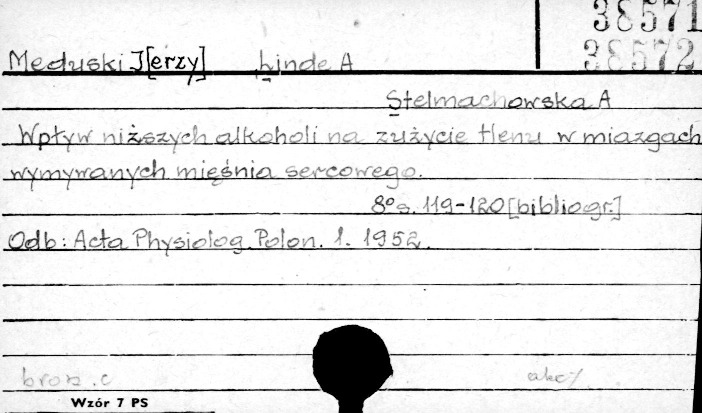 38571
38572
Meduski J[erzy] Linde A
Stelmachowska A
Wpływ niższych alkoholi na zużycie tlenu w miazgach
wymywanych mięśnia sercowego.
8° s. 119-120 [bibliogr.]
Odb: Acta Physiolog. Polon. 1. 1952.
brosz. c
Wzór 7 PS